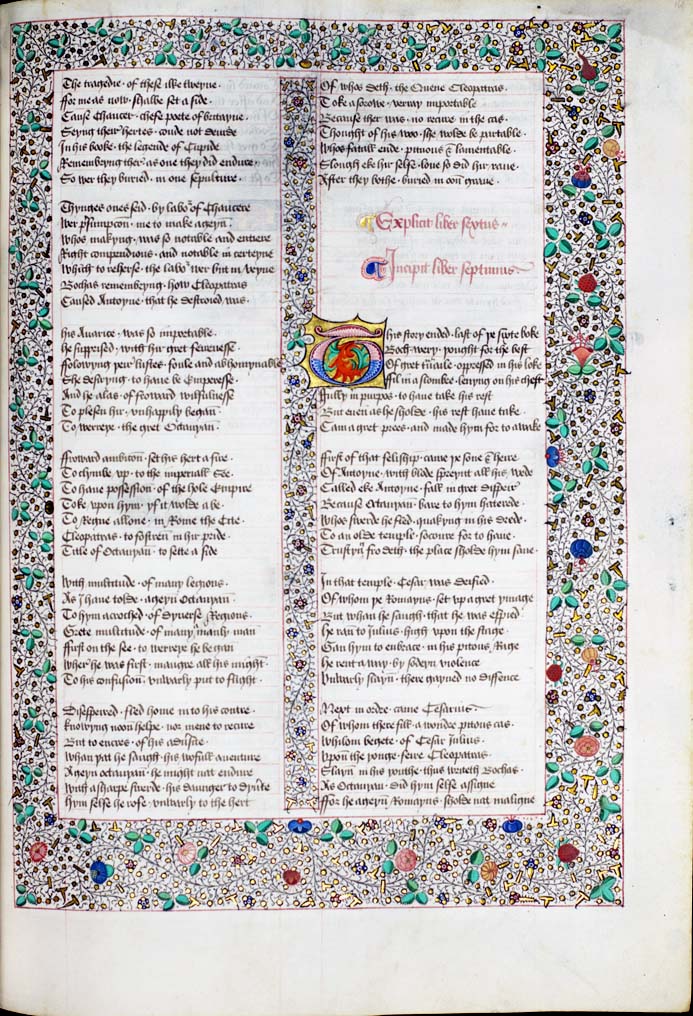 The tragedie · of these ilke tweyne ·
ffor me as now · schalbe set a side ·
Cause Chaucer · chefe poete of bretayne ·
Seyng their hertes · coude not deuide
In his booke · the legende of Cupide
Remembryng ther · as one they did endure
So wer they buried · in one sepulture ·
Thynges ones seid · by labor of Chaucere
Wer presumpcon · me to make ageyn ·
Whos makyng · was so notable and entiere
Right compendious · and notable in certeyne
Which to reherse · the labor wer but in veyne
Bochas remembryng · how Cleopatras
Caused Antoyne · that he destroied was ·
his Auarice · was so importable ·
he supprised · with hir gret feirenesse ·
ffolowyng peir lustes · foule and abhomynable
She desiryng · to haue be Emperesse ·
And he alas · of froward wilfulnesse
To plesen hir · vnhappily began
To werreye · the gret Octauyan ·
ffroward ambicion · set his hert a fire ·
To clymbe vp · to the imperiall See ·
To haue possession · of the hole Empire
Toke vpon hym · yf it wolde a be ·
To Regne allone · in Rome the Cite ·
Cleopatras · to fostren in hir pride ·
Title of Octauyan · to sette a side
With multitude · of many legions ·
As I haue tolde · ageyn Octauyan ·
To hym acroched · of dyuerse Regions ·
Grete multitude · of many manly man
ffirst on the see · to werreye he began
Wher he was first · maugre all his myght ·
To his confusion · vnwarly put to flight ·
Disespeired · fled home in to his contre ·
knowyng noon helpe · nor mene to recure
But to encres · of his aduersite
Whan pat he saugh · his wofull auenture
Ageyn octauyan · he might nat endure
With a scharpe swerde · his daunger to dyuerte
hym selfe he rofe · vnwarly to the hert
Of whos deth · the Quene Cleopatras ·
Toke a sorowe · verray importable
Because ther was · no recure in the cas ·
Thought of his woo · she wolde be partable ·
Whos fatall ende · pitouous & lamentable ·
Slough eke hir selfe · loue so did hir raue ·
After they bothe · buried in oon graue ·
Explicit liber sextus ·
Incipit liber septimus ·
This story ended · last of pe sixte boke
Boch wery · pought for the best
Of gret trauaile · opressed in his loke
ffil in a slombre · lenyng on his chest
ffully in purpos · to haue take his rest
But euen as he sholde · his rest haue take ·
Cam a gret prees · and made hym for to awake
ffirst of that felishep · came pe sone & heire
Of Antoyne · with blode spreynt all his wede
Called eke Antoyne · falle in gret dispeir
Because Octauyan · bare to hym haterede ·
Whos swerde he fled · quakyng in his drede ·
To an olde temple · socoure for to haue ·
Trustyng fro deth · the place sholde hym saue ·
In that temple · Cesar was deified ·
Of whom pe Romayns · set vp a gret ymage
But whan he saugh · that he was espied
he ran to Iulius · high vpon the stage ·
Gan hym to enbrace · in his pitous Rage
he rent a way · by sodeyn violence
Vnwarly slayn · there gayned no diffence
Next in ordre · came Cesarius ·
Of whom there fill · a wondre pitous cas ·
Whilom begete · of Cesar Iulius ·
Vpon the yonge · feire Cleopatras ·
Slayn in his youthe · thus writeth Bochas ·
As Octauyan · did hym selfe assigne
ffor he ageyn Romayns · sholde nat maligne